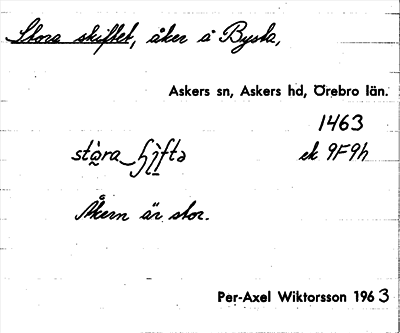 Stora skiftet, åker å Bysta,
Askers sn, Askers hd, Örebro län.
1463
ek 9F9h
Åkern är stor.
Per-Axel Wiktorsson 1963